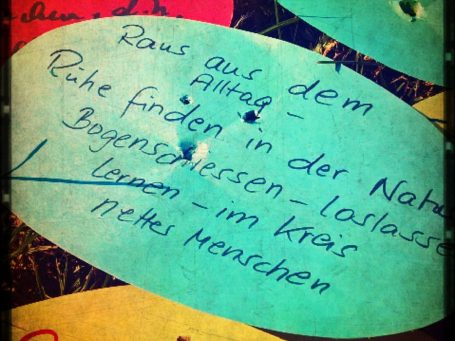 Raus aus dem
Alltag -
Ruhe finden in der Natu
Bogenschiessen - loslasse
lernen - im Kreis
netter Menschen